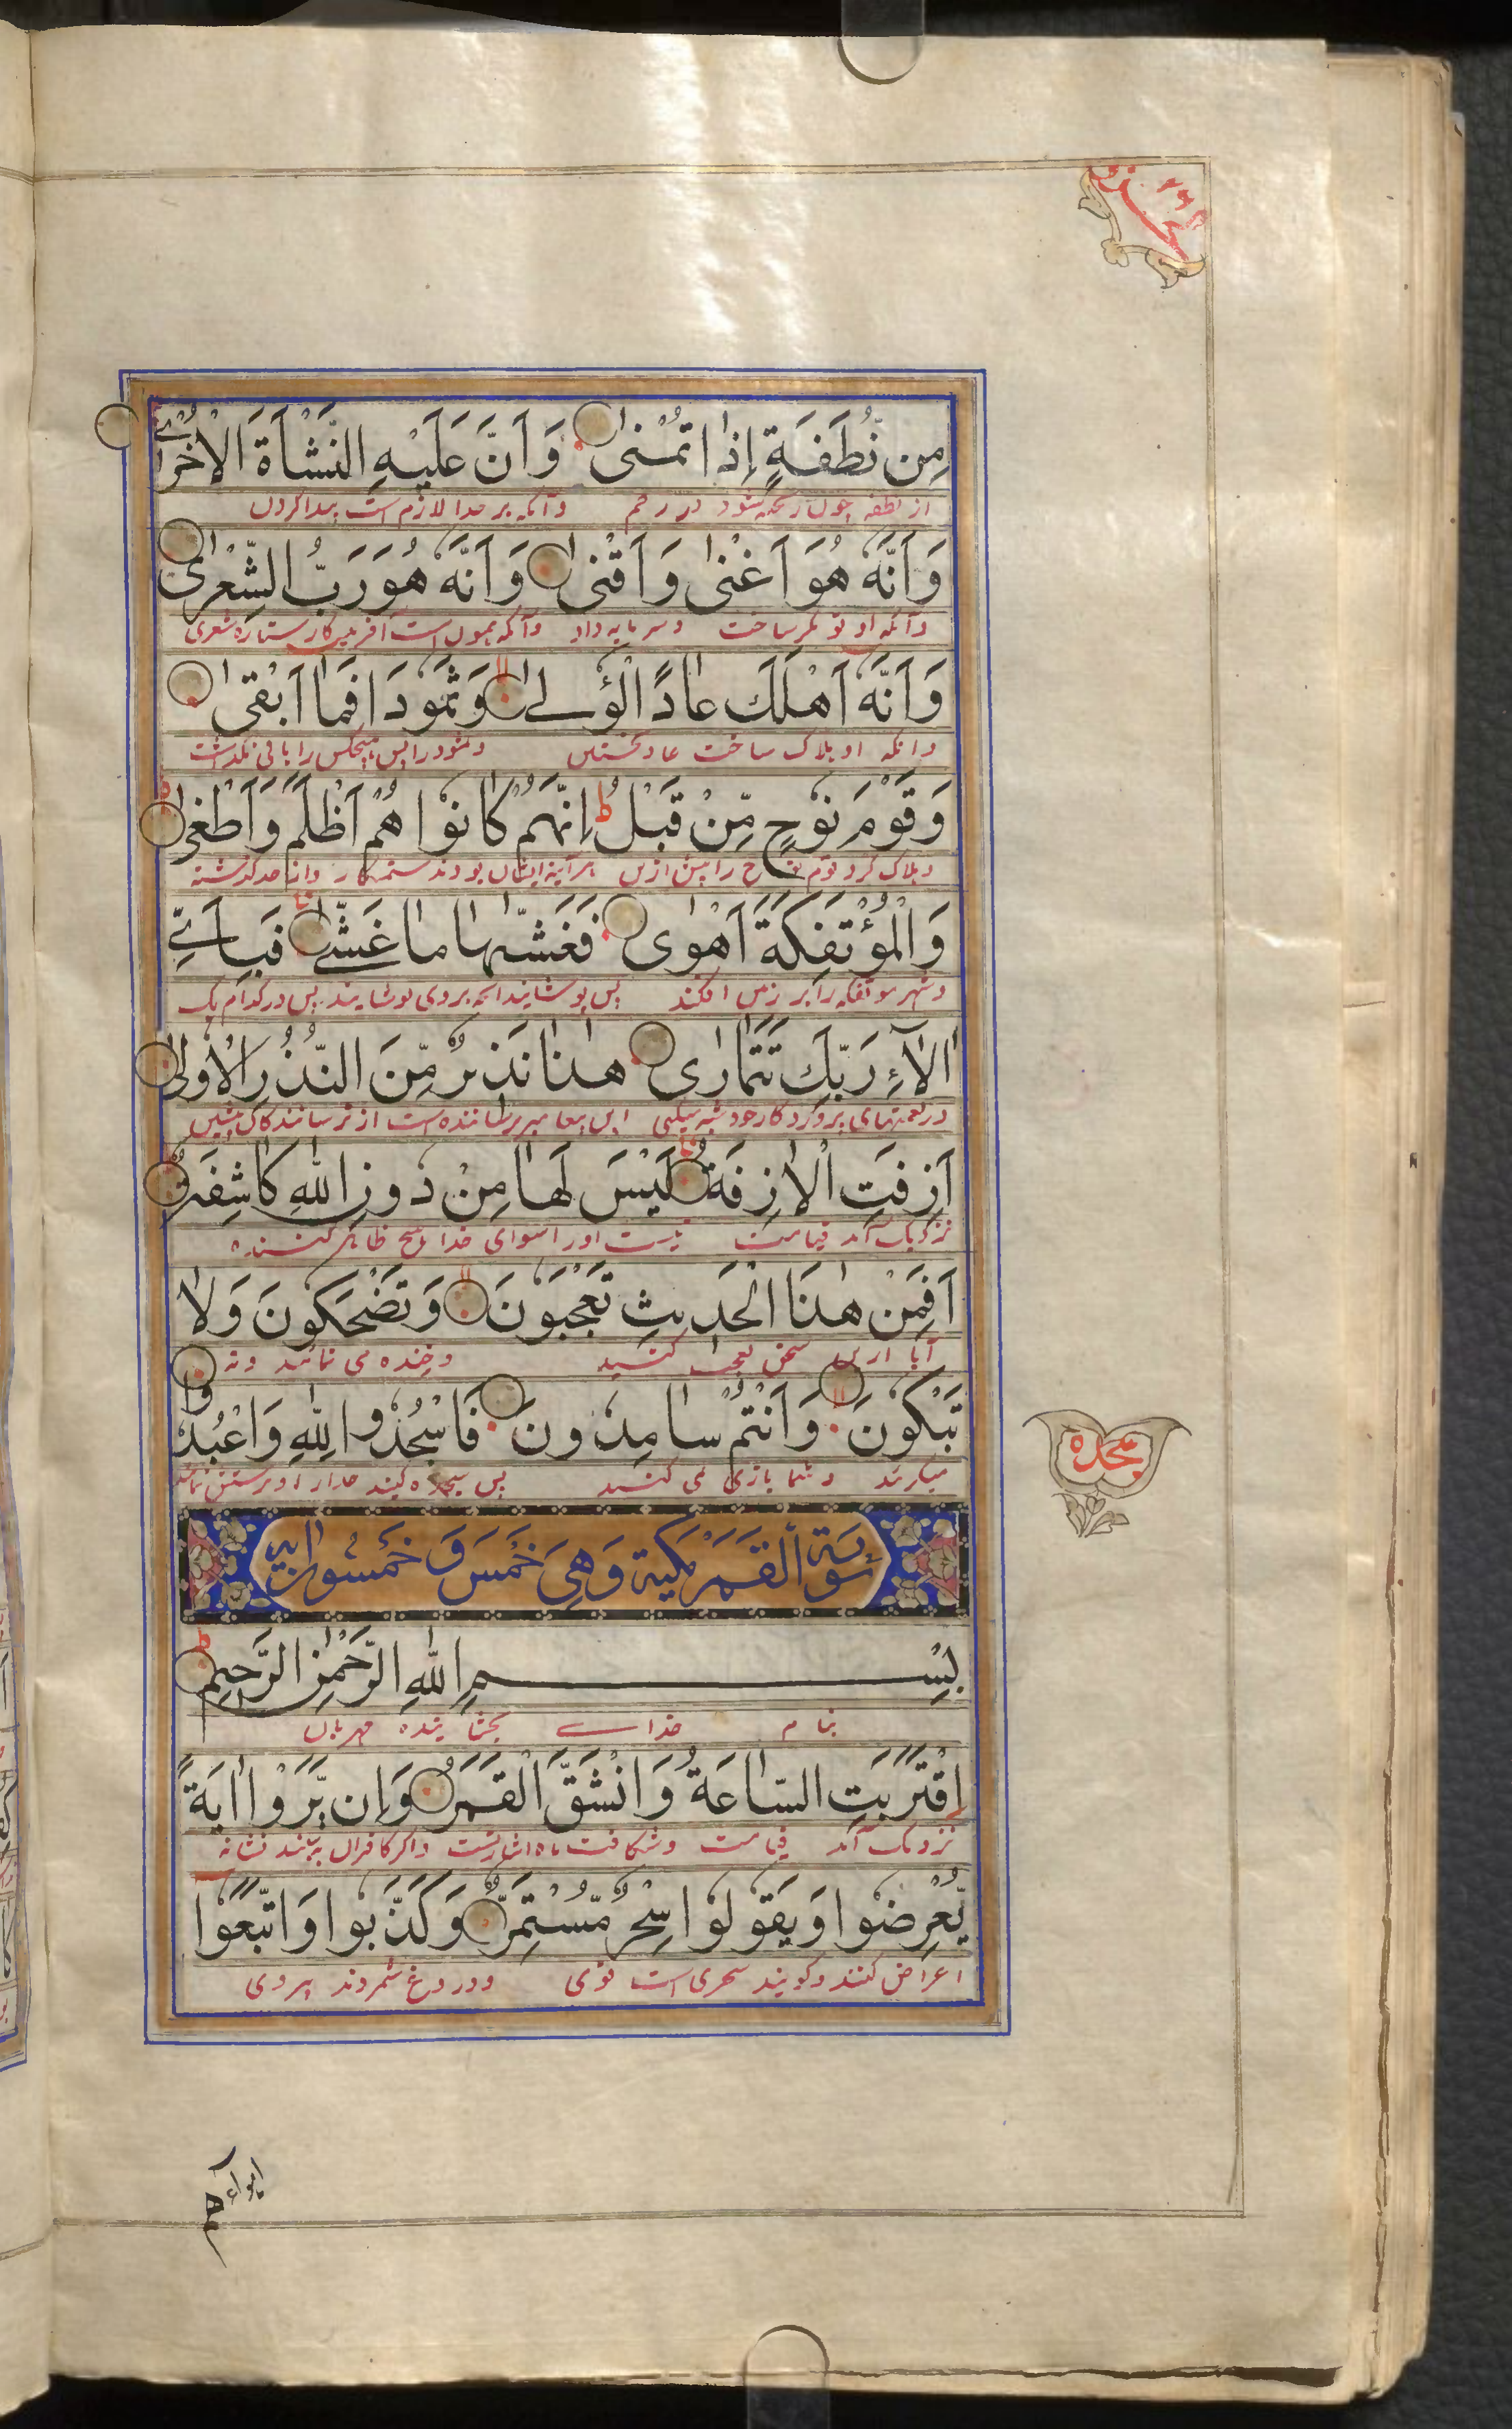 مِن نُّطْفَةٍ إِذَا تُمْنٰى وَ اَنَّ عَلَيْهِ النَّشْاَةَ الْاُخْرٰى
از نطفه چون ریخته شود در رحم وآنکه بر خدا لازم است پیدا کردن
وَ اَنَّهٗ هُوَ اَغْنٰى وَ اَقْنٰى وَ اَنَّهٗ هُوَ رَبُّ الشِّعْرٰى
وآنکه او تونگر ساخت وسرمایه داد وآنکه همون است آفریدگار ستاره شعری
وَ اَنَّهٗ اَهْلَكَ عَادًا الْؤُلٰى وَ ثَمُوْدَا فَمَا اَبْقٰى
وآنکه او هلاک ساخت عاد نخستین وثمود را پس هیچکس را باقی نگذاشت
وَ قَوْمَ نُوْحٍ مِّنْ قَبْلُ ط اِنَّهُمْ كَانُوْا هُمْ اَظْلَمَ وَ اَطْغٰى
وهلاک کرد قوم نوح را پیش ازین هر آینه ایشان بودند ستمکار وازحد گذشته
وَ الْمُؤْتَفِكَةَ اَهْوٰى فَغَشّٰىهَا مَا غَشّٰى فَبِاَيِّ
وشهر موتفکه را بر زمین افکند پس پوشانید آنچه بروی پوشانید پس در کدام یک
اٰلَآءِ رَبِّكَ تَتَمَارٰى هٰذَا نَذِيْرٌ مِّنَ النُّذُرِ الْاُوْلٰى
در نعمتهای پروردگار خود شبه میکنی این پیغامبر ترساننده است از ترسانندگان پیشین
اَزِفَتِ الْاٰزِفَةُ لَيْسَ لَهَا مِنْ دُوْنِ اللهِ كَاشِفَةٌ
نزدیک آمد قیامت نیست اورا سوای خدا هیچ ظاهر کننده
اَفَمِنْ هٰذَا الْحَدِيْثِ تَعْجَبُوْنَ وَ تَضْحَكُوْنَ وَلَا
آیا ازین سخن تعجب کنید وخنده می نمائید ونه
تَبْكُوْنَ وَ اَنْتُمْ سَامِدُوْنَ فَاسْجُدُوْا لِلّٰهِ وَ اعْبُدُوْا
میگریید وشما بازی می کنید پس سجده کنید خدارا وپرستش نمائید
سُوْرَةُ الْقَمَرِ مَكِّيَّة وَهِيَ خَمْسَ وَ خَمْسُوْنَ اٰيَة
بِسْمِ اللهِ الرَّحْمٰنِ الرَّحِيْمِ
بنام خداے بخشاینده مهربان
اِقْتَرَبَتِ السَّاعَةُ وَ انْشَقَّ الْقَمَرُ وَ اِن يَّرَوْا اٰيَةً
نزدیک آمد قیامت وشکافت ماه واگر کافران ببینند نشانه
يُّعْرِضُوْا وَ يَقُوْلُوْا سِحْرٌ مُّسْتَمِرٌّ وَ كَذَّبُوْا وَ اتَّبَعُوْا
اعراض کنند وگویند سحری است قوی ودروغ شمردند پیروی
سجده
اهواءهم